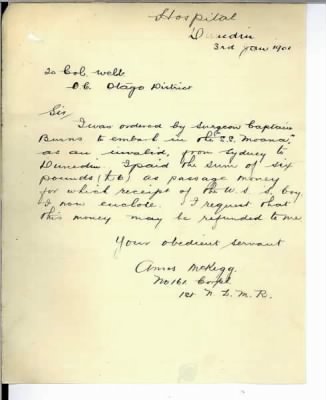 Hospital
Dunedin
3rd Jan 1901
To Col. Webb
O.C. Otago District
Sir
I was ordered by Surgeon Captain
Burns to embark in the S.S. "Moana"
as an invalid, from Sydney to
Dunedin. I paid the sum of six
pounds (£6) as passage money
for which receipt of the U. S. S. Coy
I now enclose. I request that
this money may be refunded to me
Your obedient servant
Amos McKegg
No 161 Corpl
1st N. Z. M. R.